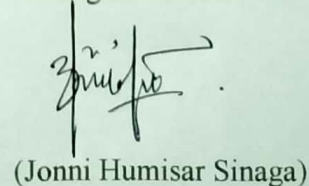 (Jonni Humisar Sinaga)